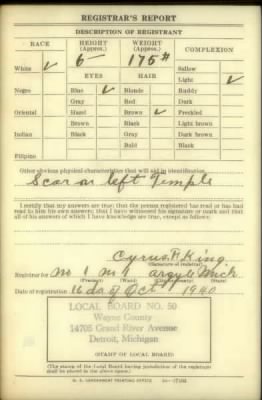 REGISTRAR'S REPORT
DESCRIPTION OF REGISTRANT
RACE HEIGHT (Approx.) WEIGHT (Approx.) COMPLEXION
6 175#
White ✓ Sallow
EYES HAIR Light ✓
Negro Blue ✓ Blonde Ruddy
Gray Red Dark
Oriental Hazel Brown ✓ Freckled
Brown Black Light brown
Indian Black Gray Dark brown
Bald Black
Filipino
Other obvious physical characteristics that will aid in identification
Scar on left Temple
I certify that my answers are true; that the person registered has read or has had read to him his own answers; that I have witnessed his signature or mark and that all of his answers of which I have knowledge are true, except as follows:
Cyrus F. King
(Signature of registrar)
Registrar for No 1 No 1 Argyle Mich
(Precinct) (Ward) (City or county) (State)
Date of registration 16 day of Oct 1940
LOCAL BOARD NO. 50
Wayne County
14705 Grand River Avenue
Detroit, Michigan
(STAMP OF LOCAL BOARD)
(The stamp of the Local Board having jurisdiction of the registrant shall be placed in the above space.)
U. S. GOVERNMENT PRINTING OFFICE